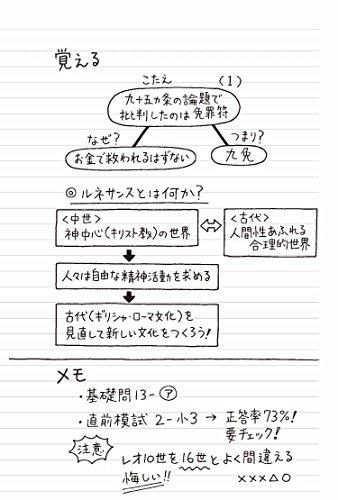 覚える
こたえ (1)
九十五ヵ条の論題で
批判したのは免罪符
なぜ? つまり?
お金で救われるはずない 九免
◎ルネサンスとは何か?
<中世>
神中心(キリスト教)の世界
<古代>
人間性あふれる
合理的世界
人々は自由な精神活動を求める
古代(ギリシャ・ローマ文化)を
見直して新しい文化をつくろう!
メモ
・基礎問13-㋐
・直前模試 2-小3 → 正答率73%!
要チェック!
注意 レオ10世を16世とよく間違える
悔しい!! ×××△○